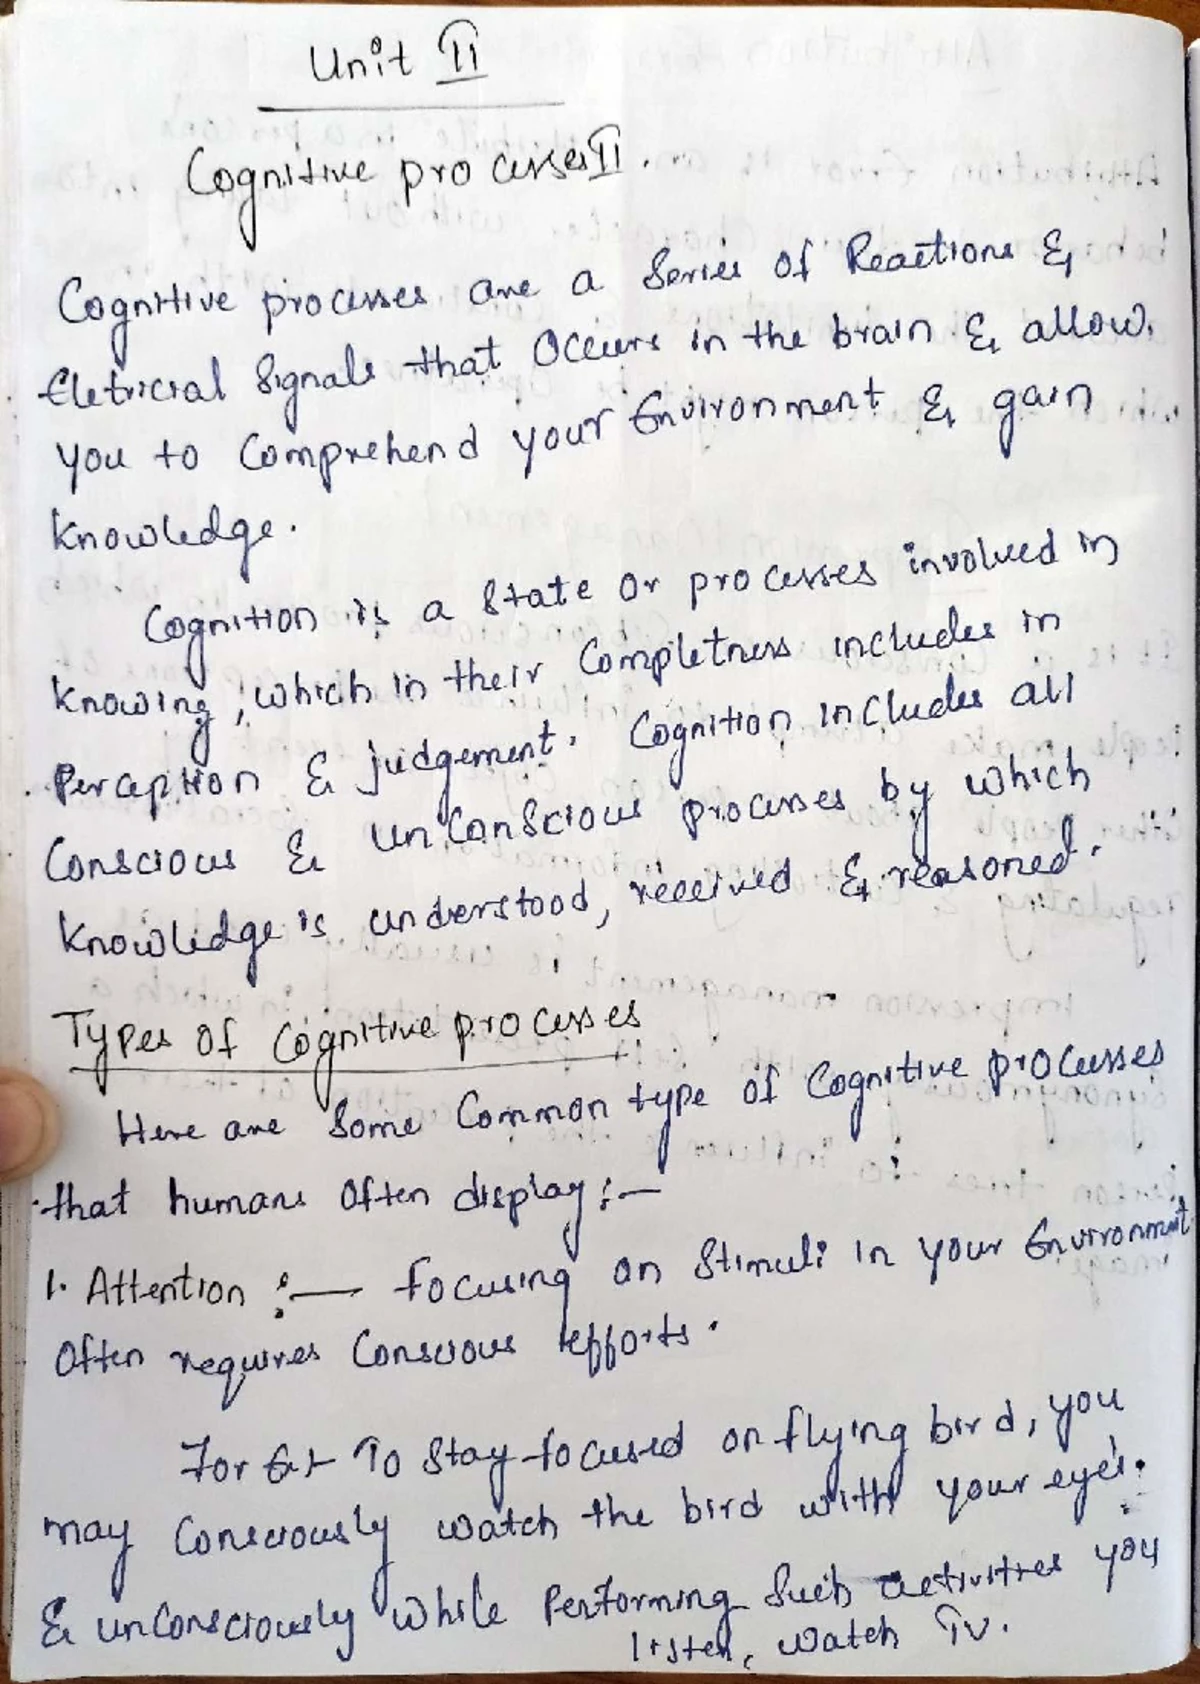 Unit II
Cognitive processes II.
Cognitive processes are a Series of Reactions &
Eletricial Signals that Occurs in the brain & allow
you to Comprehend your Environment & gain
Knowledge.
Cognition is a State or processes involved in
Knowing, which in their Completness includes in
Perception & judgement. Cognition includes all
Conscious & unConscious processes by which
Knowledge is understood, received & reasoned.
Types of Cognitive processes
Here are Some Common type of Cognitive processes
that humans Often display :-
1. Attention :- focusing on Stimuli in your Environment
Often requires Conscious efforts.
For Ex- To Stay focused on flying bird, you
may Consciously watch the bird with your eye's.
& unConsciously while Performing Such activities you
listen, watch TV.